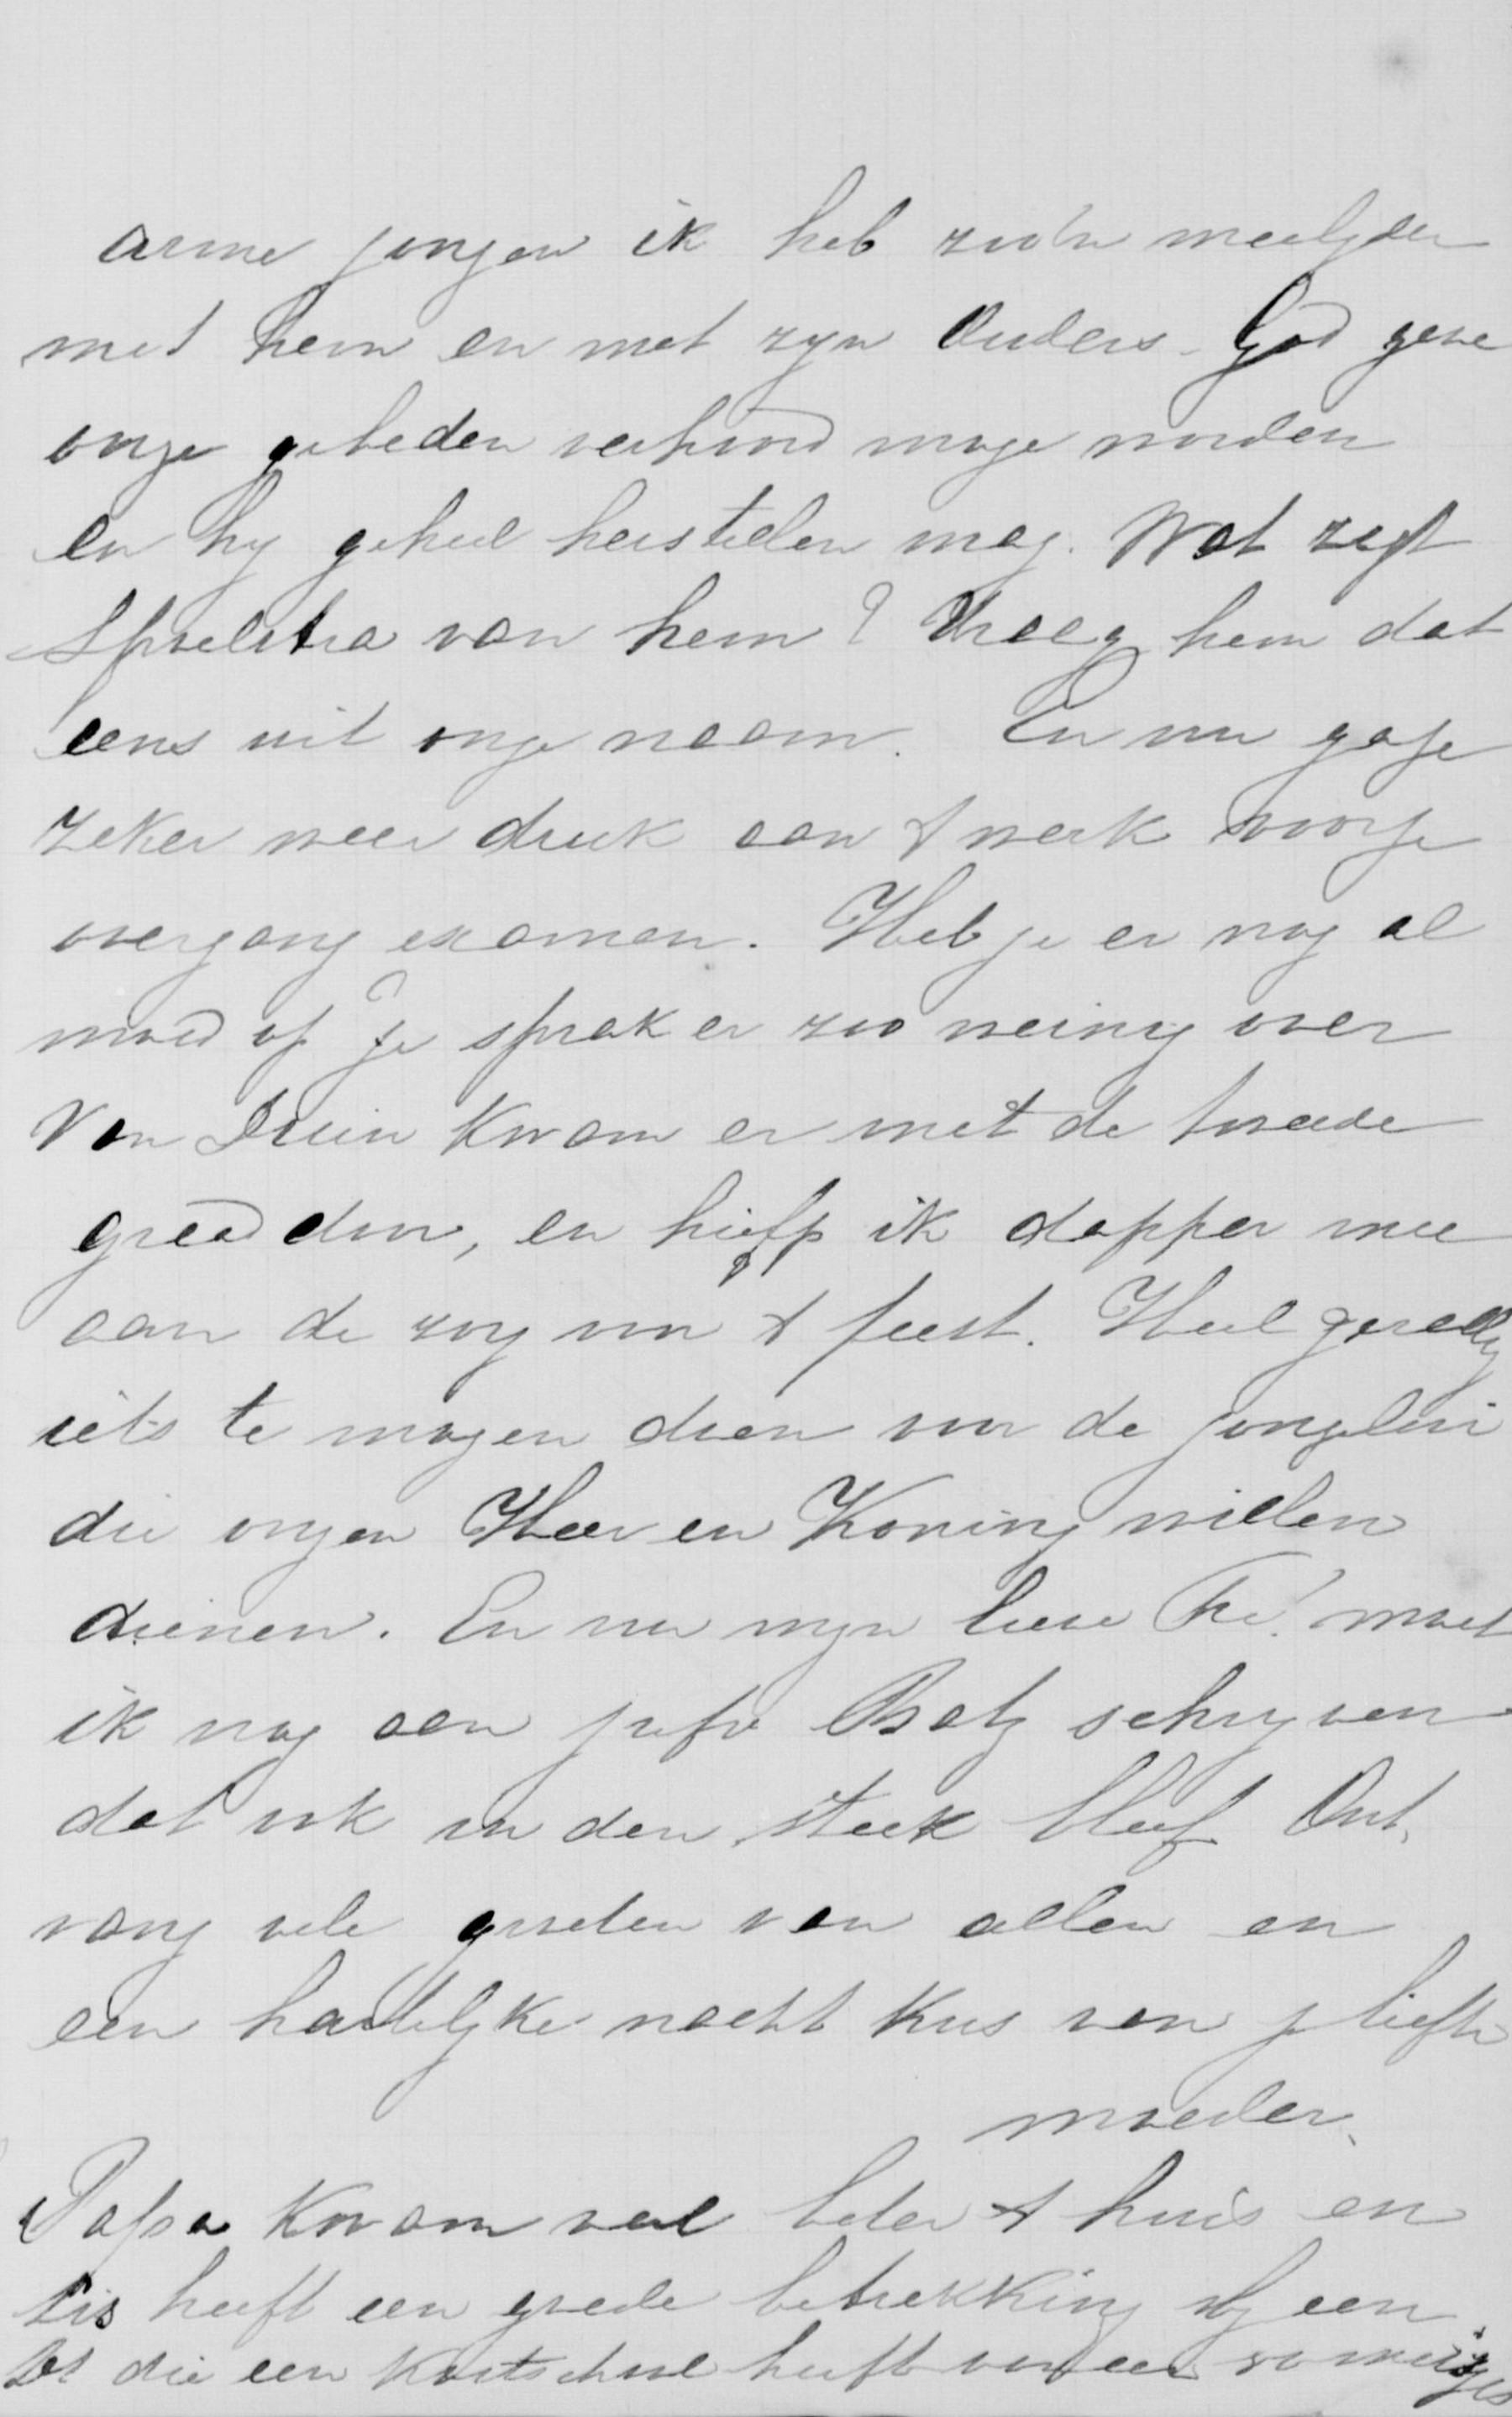 arme jongen ik heb zoo'n meelyden
met hem en met zyn Ouders. God geve
onze gebeden verhoord moge worden
en hy geheel herstellen mag. Wat zegt
van hem? Vraag hem dat
eens uit onze naam. En nu ga je
zeker weer druk aan 't werk voor je
overgang examen. Heb je er nog al
moed op? Je sprak er zoo weinig over
Van Druin kwam er met de tweede
graad door, en hielp ik dapper mee
aan de zorg van 't feest. Heel gezellig
iets te mogen doen voor de jongelui
die onzen Heer en Koning willen
dienen. En nu myn lieve moet
ik nog aan jufr schryven
dat ook in den steek bleef Ont,
vang vele groeten van allen en
een hartelyke nacht kus van je liefh
moeder.
Papa kwam veel beter t huis en
heeft een goede betrekking by een
die een kostschool heeft voor meisjes